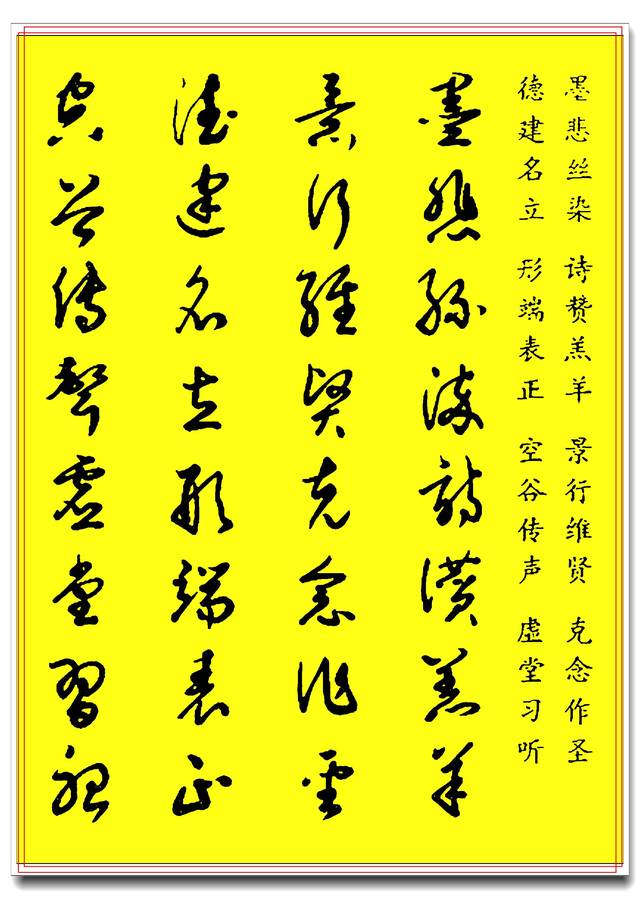 墨悲丝染 诗赞羔羊 景行维贤 克念作圣
德建名立 形端表正 空谷传声 虚堂习听
墨悲絲染詩讚羔羊
景行維賢克念作聖
德建名立形端表正
空谷傳聲虛堂習聽